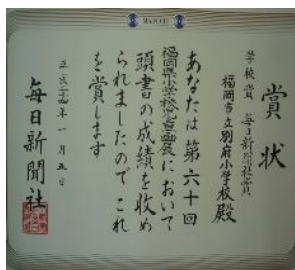 賞状
学校賞 毎日新聞社賞
福岡市立別府小学校殿
あなたは第六十回
福岡県小学校児童画展において
頭書の成績を収め
られましたので これ
を賞します
平成二十四年一月五日
毎日新聞社